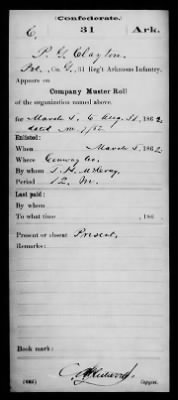 (Confederate.)
C 31 Ark.
P. G. Clayton
Pvt., Co. G, 31 Reg't Arkansas Infantry.
Appears on
Company Muster Roll
of the organization named above,
for March 5, to Aug. 31, 1862.
Enlisted:
When March 5, 1862
Where Conway Co.
By whom
Period 12 M.
Last paid:
By whom
To what time , 186 .
Present or absent Present.
Remarks:
Book mark:
(642) Copyist.